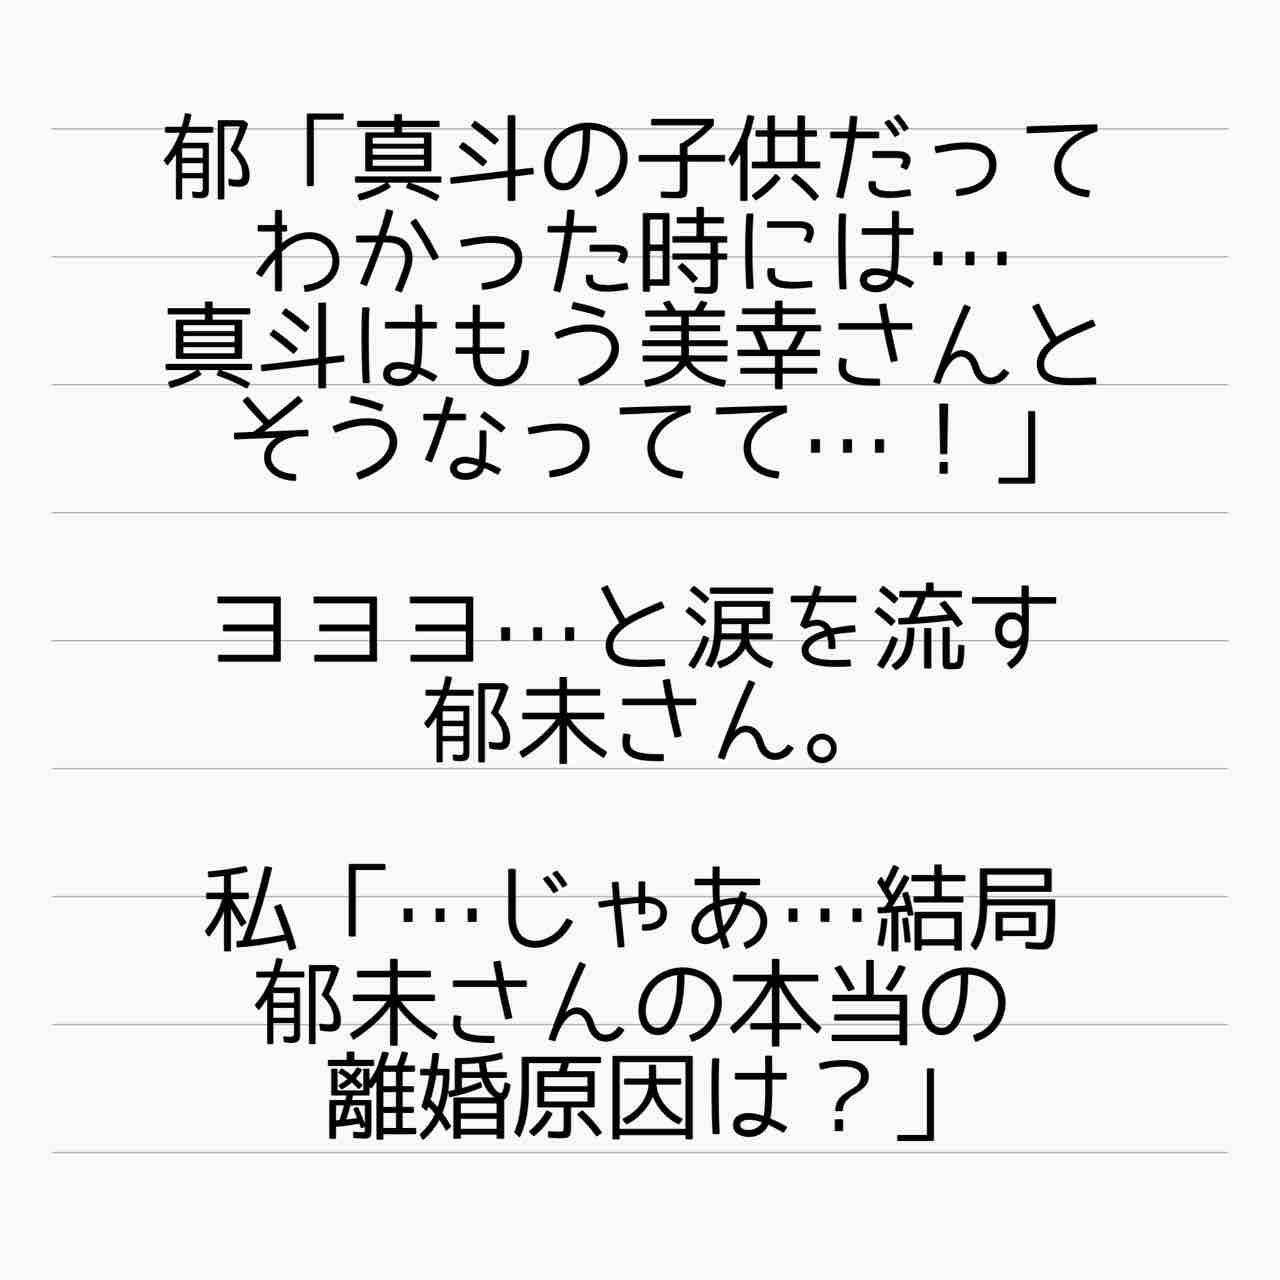 郁「真斗の子供だって
わかった時には…
真斗はもう美幸さんと
そうなってて…！」
ヨヨヨ…と涙を流す
郁未さん。
私「…じゃあ…結局
郁未さんの本当の
離婚原因は？」